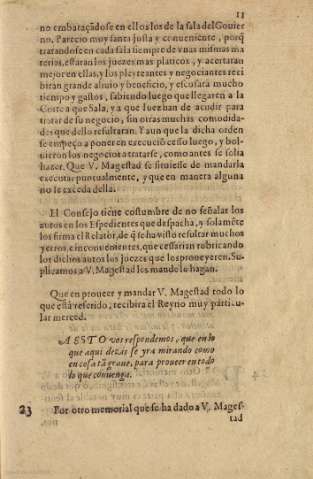 13
no embaraçãdose en ello a los de la sala del Gouier
no. Parecio muy santa justa y conueniente, porq̃
tratandose en cada sala siempre de vnas mismas ma
terias, estaran los juezes mas platicos, y acertaran
mejor en ellas, y los pleyteantes y negociantes recibiran
grande aliuio y beneficio, y escusara mucho
tiempo y gastos, sabiendo luego que llegaren a la
Corte a que Sala, y a que Iuez han de acudir para
tratar de su negocio, sin otras muchas comodidades
que dello resultaran. Y aun que la dicha orden
se empeço a poner en execuciõ ceso luego, y boluieron
los negocios a tratarse, como antes se solia
hazer. Que V. Magestad se siruiesse de mandarla
executar puntualmente, y que en manera alguna
no se exceda della.
El Consejo tiene costumbre de no señalar los
autos en los Espedientes que despacha, y solamẽte
los firma el Relator, de q̃ se ha visto resultar muchos
yerros, e inconuenientes, que cessarian rubricando
los dichos autos los juezes que los proueyeren. Suplicamos
a V. Magestad les mande lo hagan.
Que en proueer y mandar V. Magestad todo lo
que està referido, recibira el Reyno muy particular
merced.
A ESTO vos respondemos, que en lo
que aqui dezis se yra mirando como
en cosa tã graue, para proueer en todo
lo que conuenga.
23 Por otro memorial que se ha dado a V. Mages-
tad